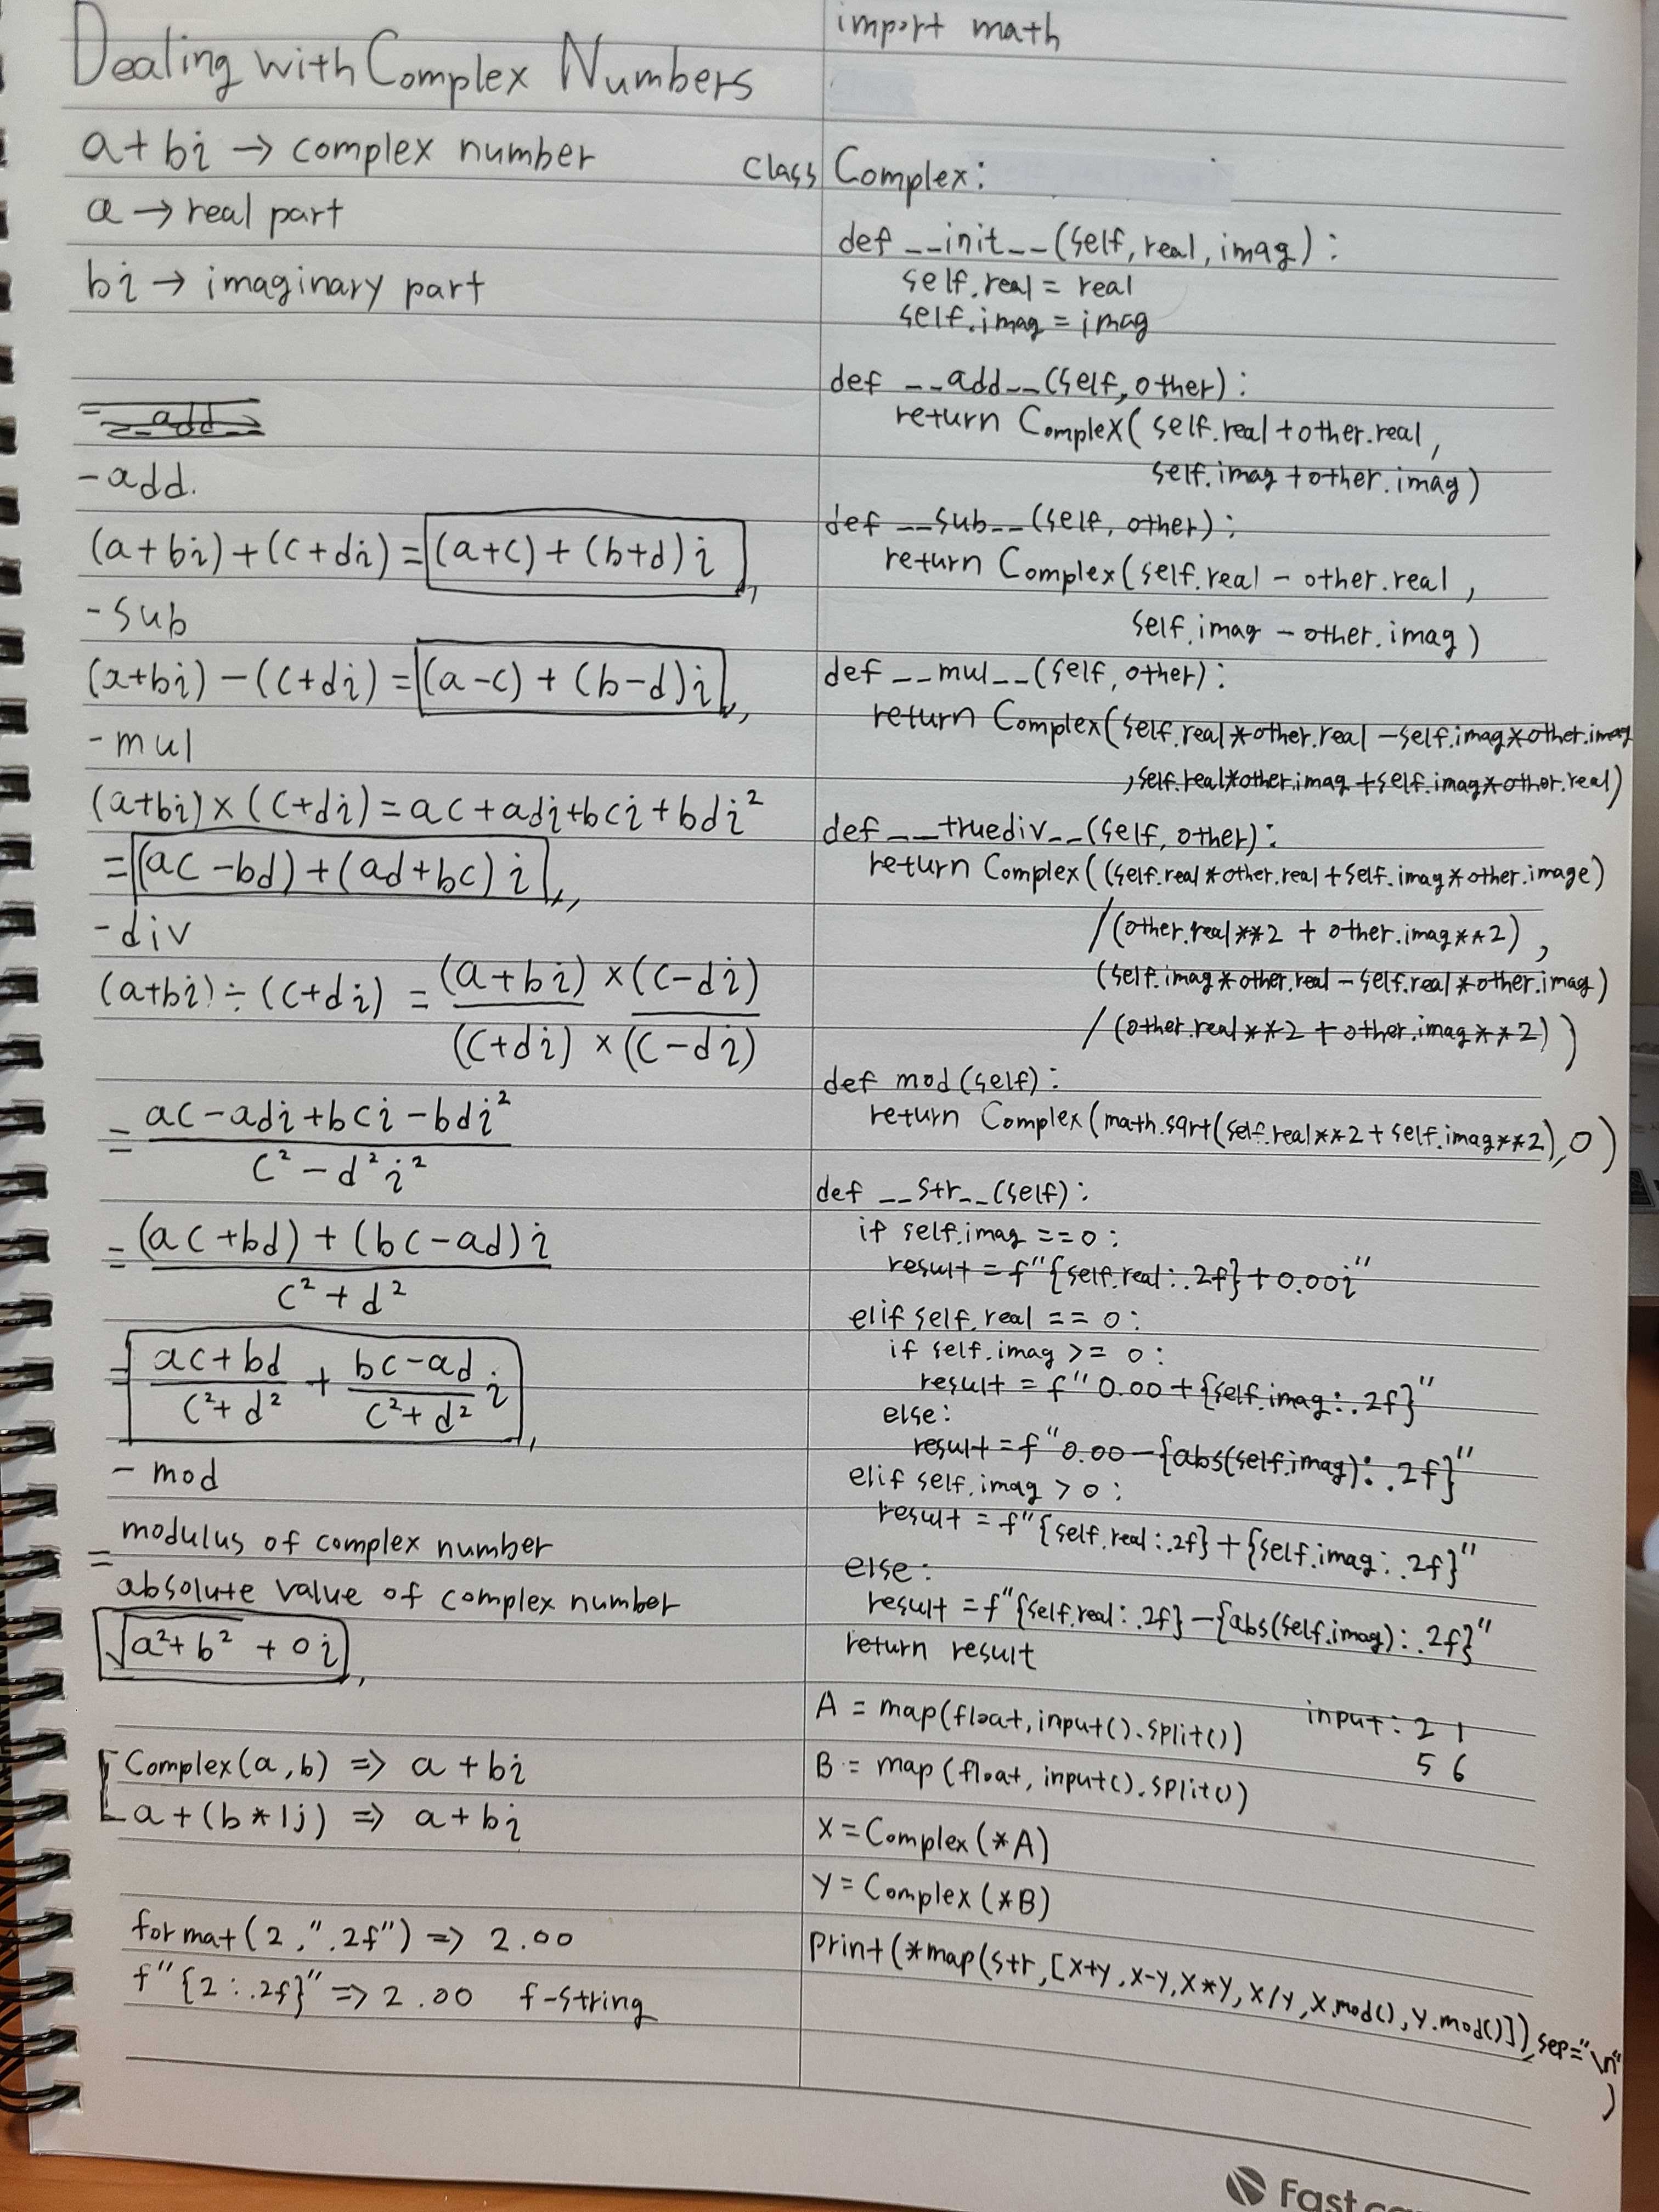 Dealing with Complex Numbers
a+bi → complex number
a → real part
bi → imaginary part
-add.
(a+bi)+(c+di)=(a+c)+(b+d)i
-sub
(a+bi)-(c+di)=(a-c)+(b-d)i
-mul
(a+bi)×(c+di)=ac+adi+bci+bdi²
=(ac-bd)+(ad+bc)i
-div
(a+bi)÷(c+di) = (a+bi)×(c-di)
(c+di)×(c-di)
= ac-adi+bci-bdi²
c²-d²i²
= (ac+bd)+(bc-ad)i
c²+d²
= ac+bd + bc-ad i
c²+d² c²+d²
- mod
modulus of complex number
=
absolute value of complex number
√a²+b² + 0i
Complex(a,b) => a+bi
a+(b*1j) => a+bi
format(2,".2f") => 2.00
f"{2:.2f}" => 2.00 f-string
import math
class Complex:
def __init__(self,real,imag):
self.real = real
self.imag = imag
def __add__(self,other):
return Complex(self.real+other.real,
self.imag+other.imag)
def __sub__(self, other):
return Complex(self.real - other.real,
self.imag - other.imag)
def __mul__(self,other):
return Complex(self.real*other.real -self.imag*other.imag
,self.real*other.imag +self.imag*other.real)
def __truediv__(self,other):
return Complex((self.real*other.real+self.imag*other.image)
/(other.real**2 + other.imag**2),
(self.imag*other.real-self.real*other.imag)
/(other.real**2 + other.imag**2))
def mod(self):
return Complex(math.sqrt(self.real**2+self.imag**2),0)
def __str__(self):
if self.imag ==0:
result = f"{self.real:.2f}+0.00i"
elif self.real == 0:
if self.imag >= 0:
result = f"0.00+{self.imag:.2f}"
else:
result = f"0.00-{abs(self.imag):.2f}"
elif self.imag > 0:
result = f"{self.real:.2f}+{self.imag:.2f}"
else:
result = f"{self.real:.2f}-{abs(self.imag):.2f}"
return result
A = map(float,input().split()) input: 2 1
B = map(float, input().split()) 5 6
X = Complex(*A)
Y = Complex(*B)
print(*map(str,[X+Y,X-Y,X*Y,X/Y,X.mod(),Y.mod()]),sep="\n"
)